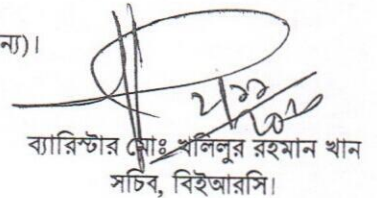 ন্য)।
ব্যারিস্টার মোঃ খলিলুর রহমান খান
সচিব, বিইআরসি।